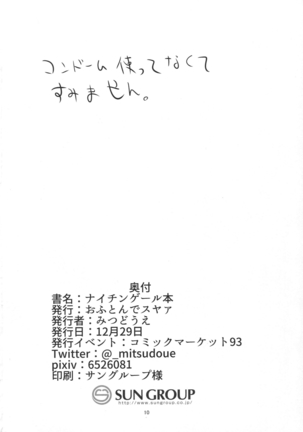 コンドーム使ってなくて
すみません。
奥付
書名：ナイチンゲール本
発行：おふとんでスヤァ
発行者：みつどうえ
発行日：12月29日
発行イベント：コミックマーケット93
Twitter：@_mitsudoue
pixiv：6526081
印刷：サングループ様
SUN GROUP
http://www.sungroup.co.jp/
18